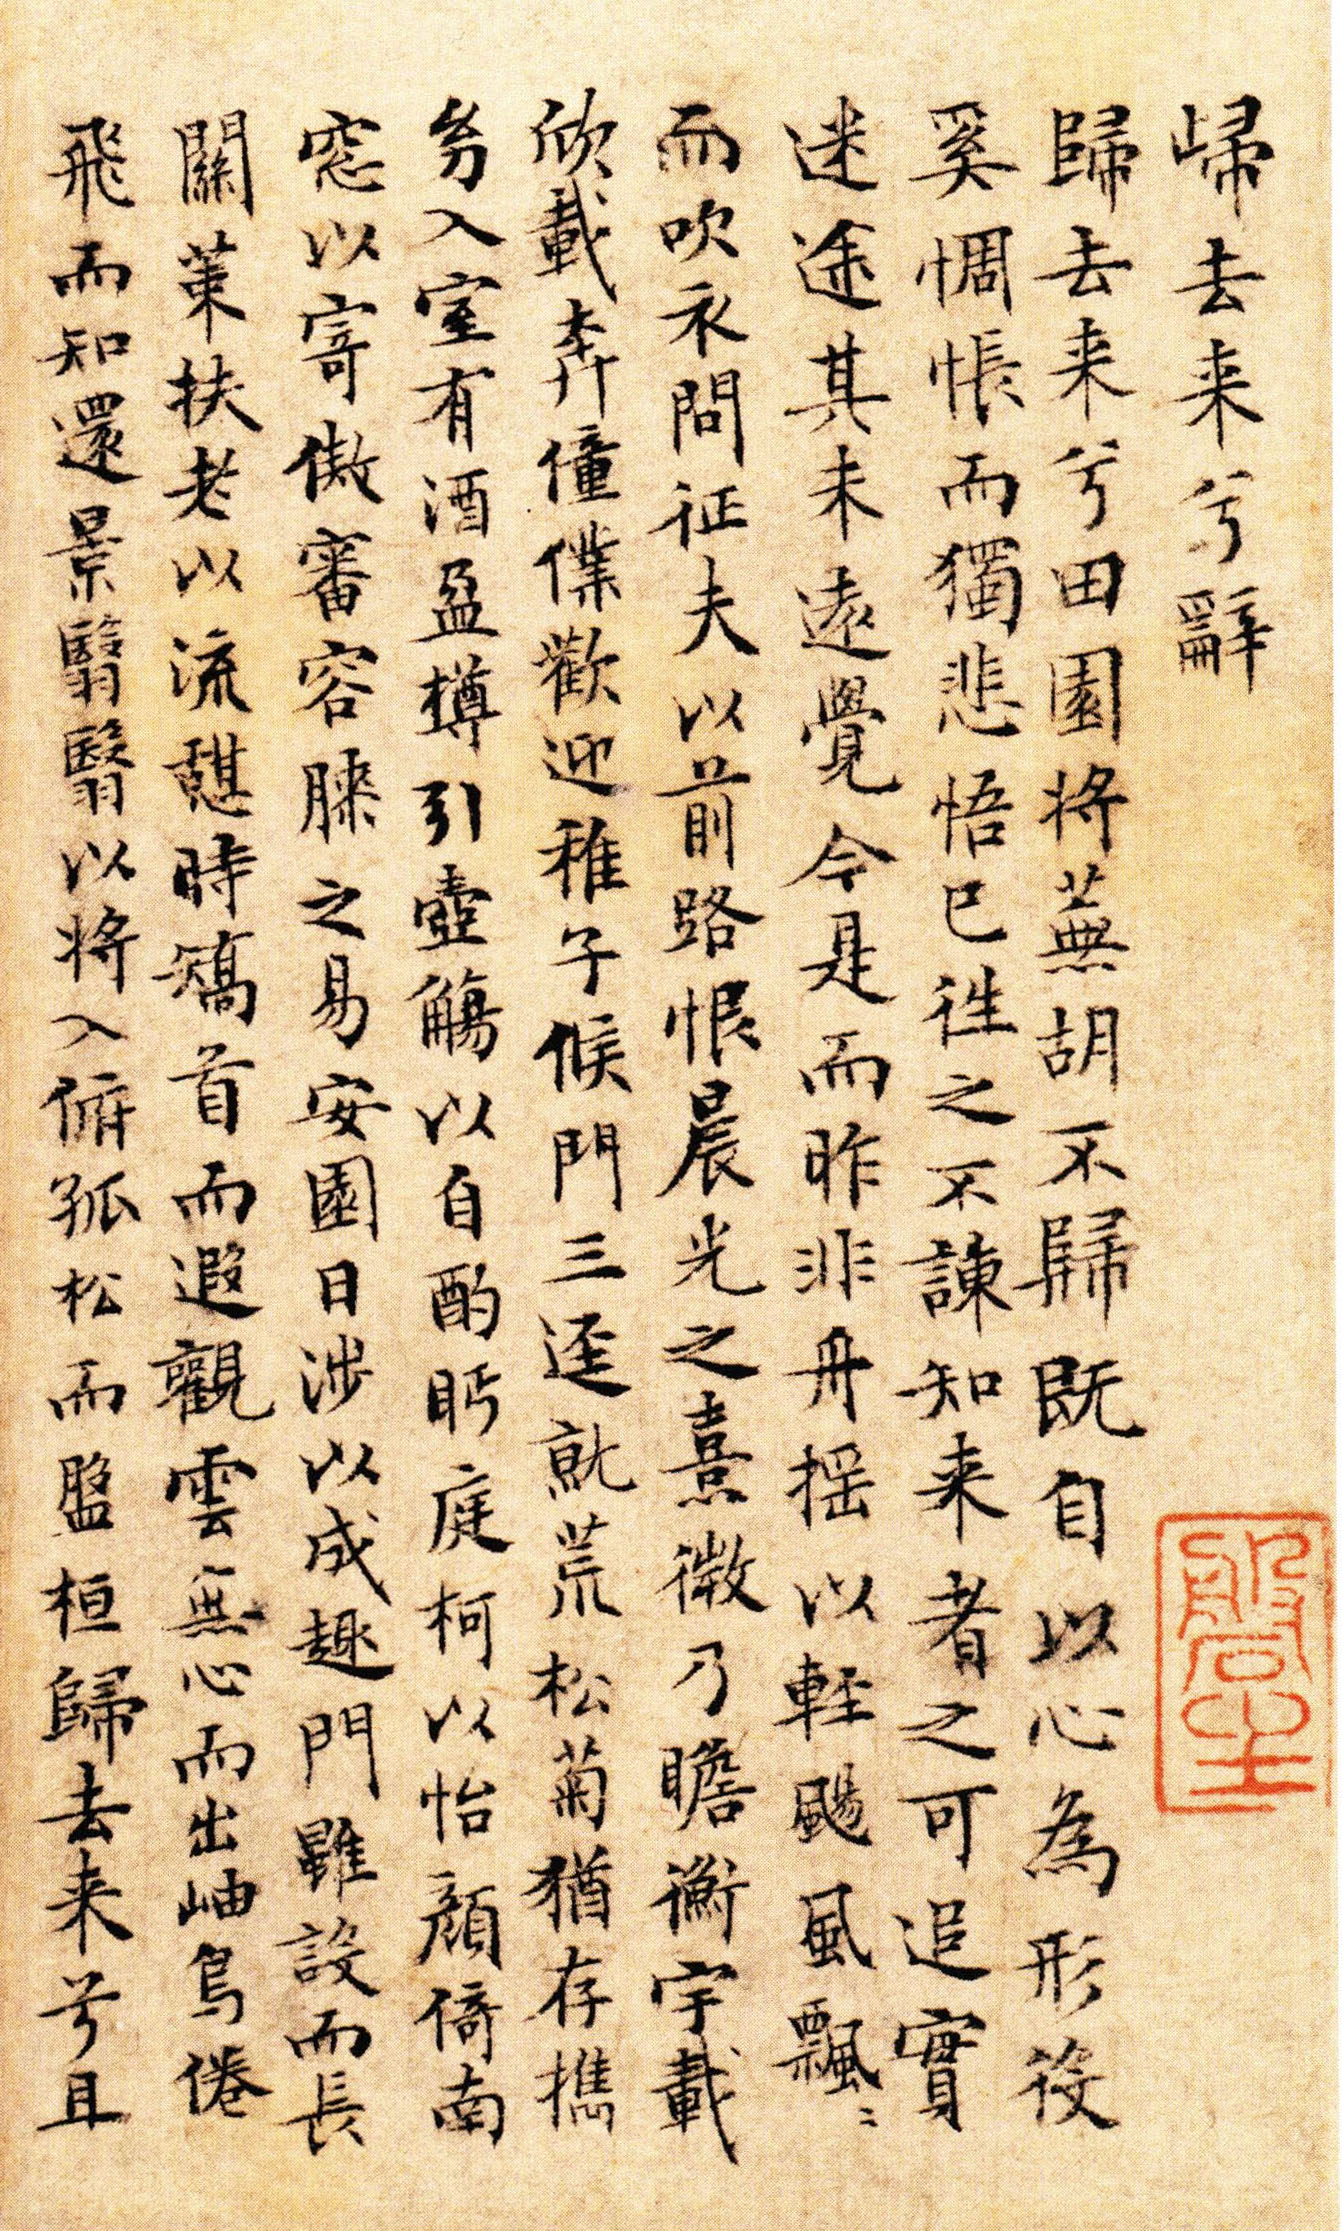 歸去来兮辭
歸去来兮田園将蕪胡不歸既自以心為形役
奚惆悵而獨悲悟已往之不諫知来者之可追實
迷途其未遠覺今是而昨非舟揺以軽颺風飄〻
而吹衣問征夫以前路恨晨光之熹微乃瞻衡宇載
欣載奔僮僕歡迎稚子候門三逕就荒松菊猶存携
㓜入室有酒盈樽引壺觴以自酌眄庭柯以怡顔倚南
窓以寄傲審容膝之易安園日渉以成趣門雖設而長
關策扶老以流憇時矯首而遐觀雲無心而出岫鳥倦
飛而知還景翳翳以将入俯孤松而盤桓歸去来兮且